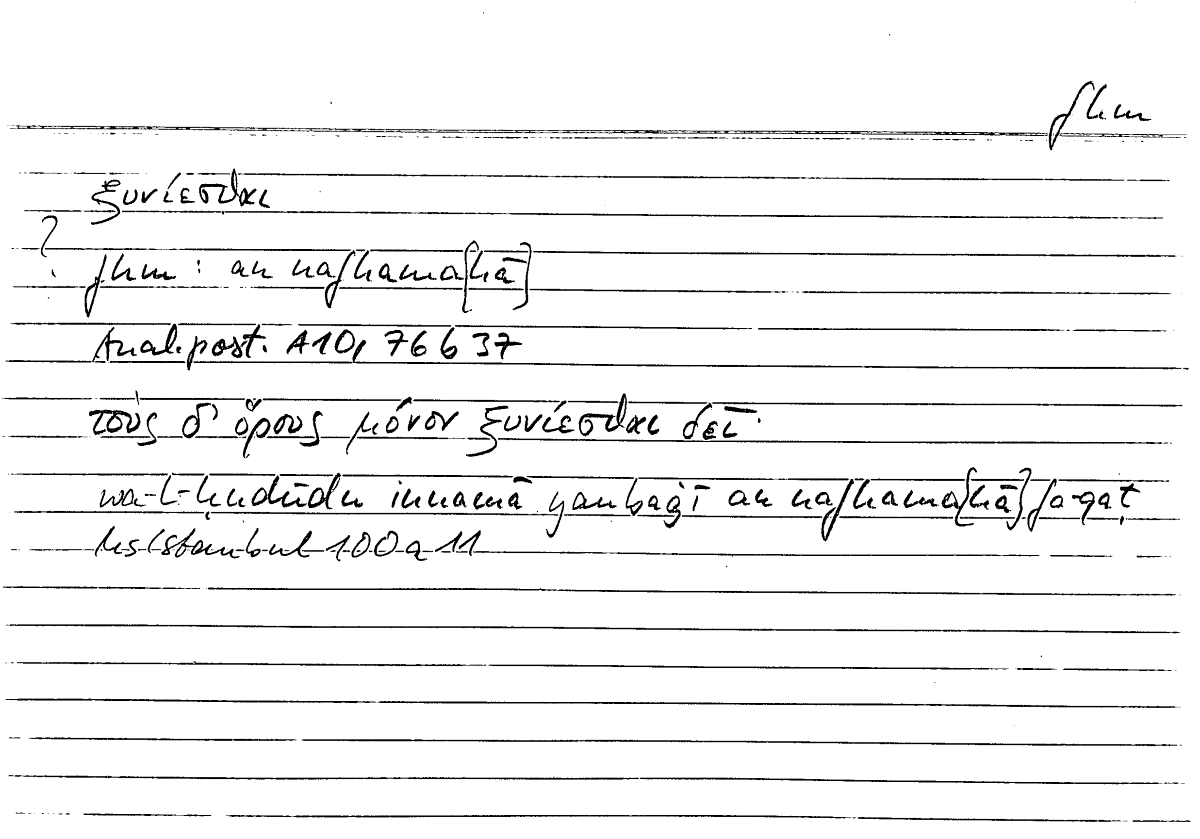 fhm
ξυνίεσθαι
?
fhm : an nafhama[hā]
Anal. post. A10, 76 b 37
τοὺς δ' ὅρους μόνον ξυνίεσθαι δεῖ·
wa-l-ḥudūdu innamā yanbaġī an nafhama[hā] fa-qaṭ
Hs Istanbul 100 a 11